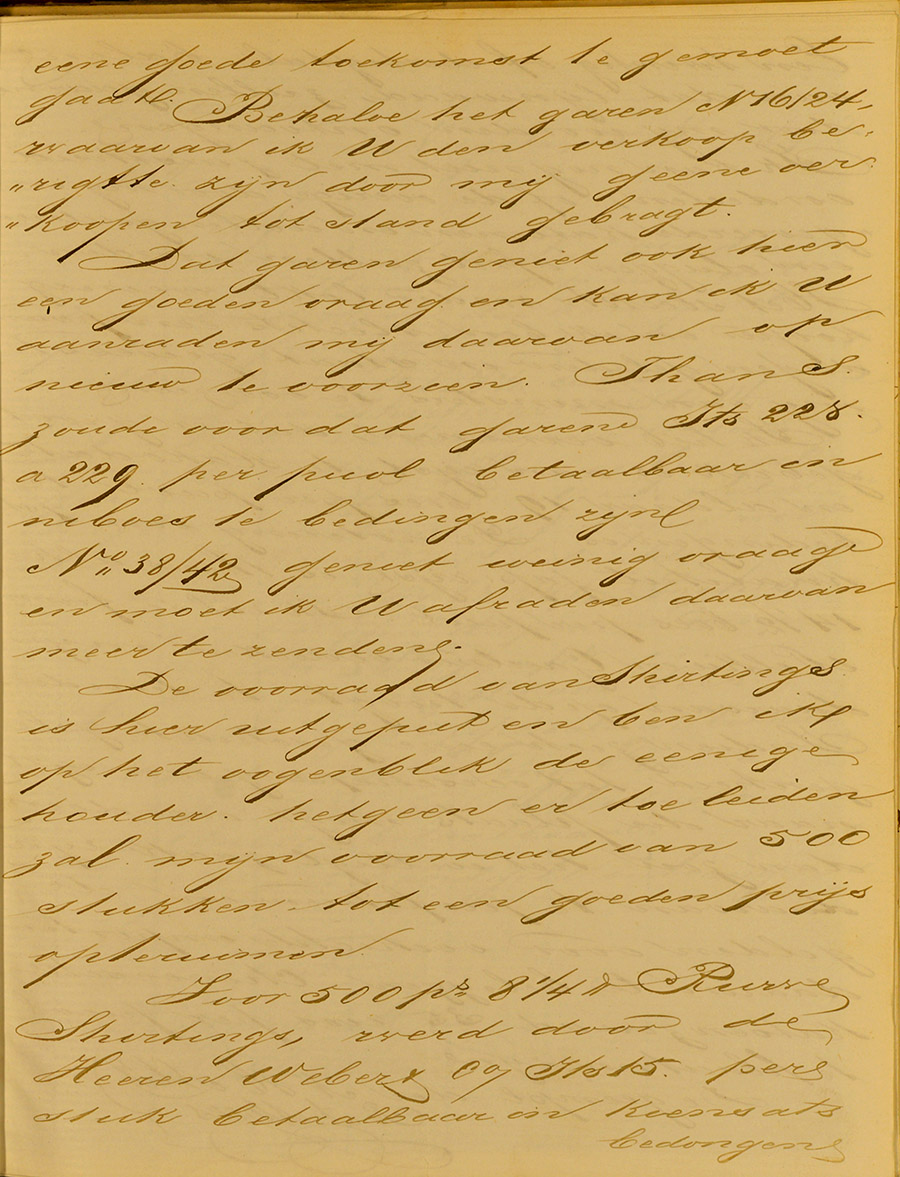 eene goede toekomst te gemoet
gaat. Behalve het garen No 16/24,
waarvan ik U den verkoop be-
"rigtte. zijn door mij geene ver-
"koopen tot stand gebragt.
Dat garen geniet ook hier
een goeden vraag en kan ik U
aanraden mij daarvan op
nieuw te voorzeen. Thans.
zoude voor dat garen Itb 228.
a 229. per picol betaalbaar in
niboes te bedingen zijn
No. 38/42 geniet weinig vraag
en moet ik U afraden daarvan
meer te zenden.
De voorraad van Shirtings
is hier uitgeput en ben ik
op het oogenblik de eenige
houder. hetgeen er toe leiden
zal. mijn voorraad van 500
stukken tot een goeden prijs
opteruimen.
Voor 500 ps. 8 1/4 lb Ruwe
Shirtings, werd door de
Heeren Weber & Co Itb 15. per
stuk betaalbaar in Kiensats
bedongen